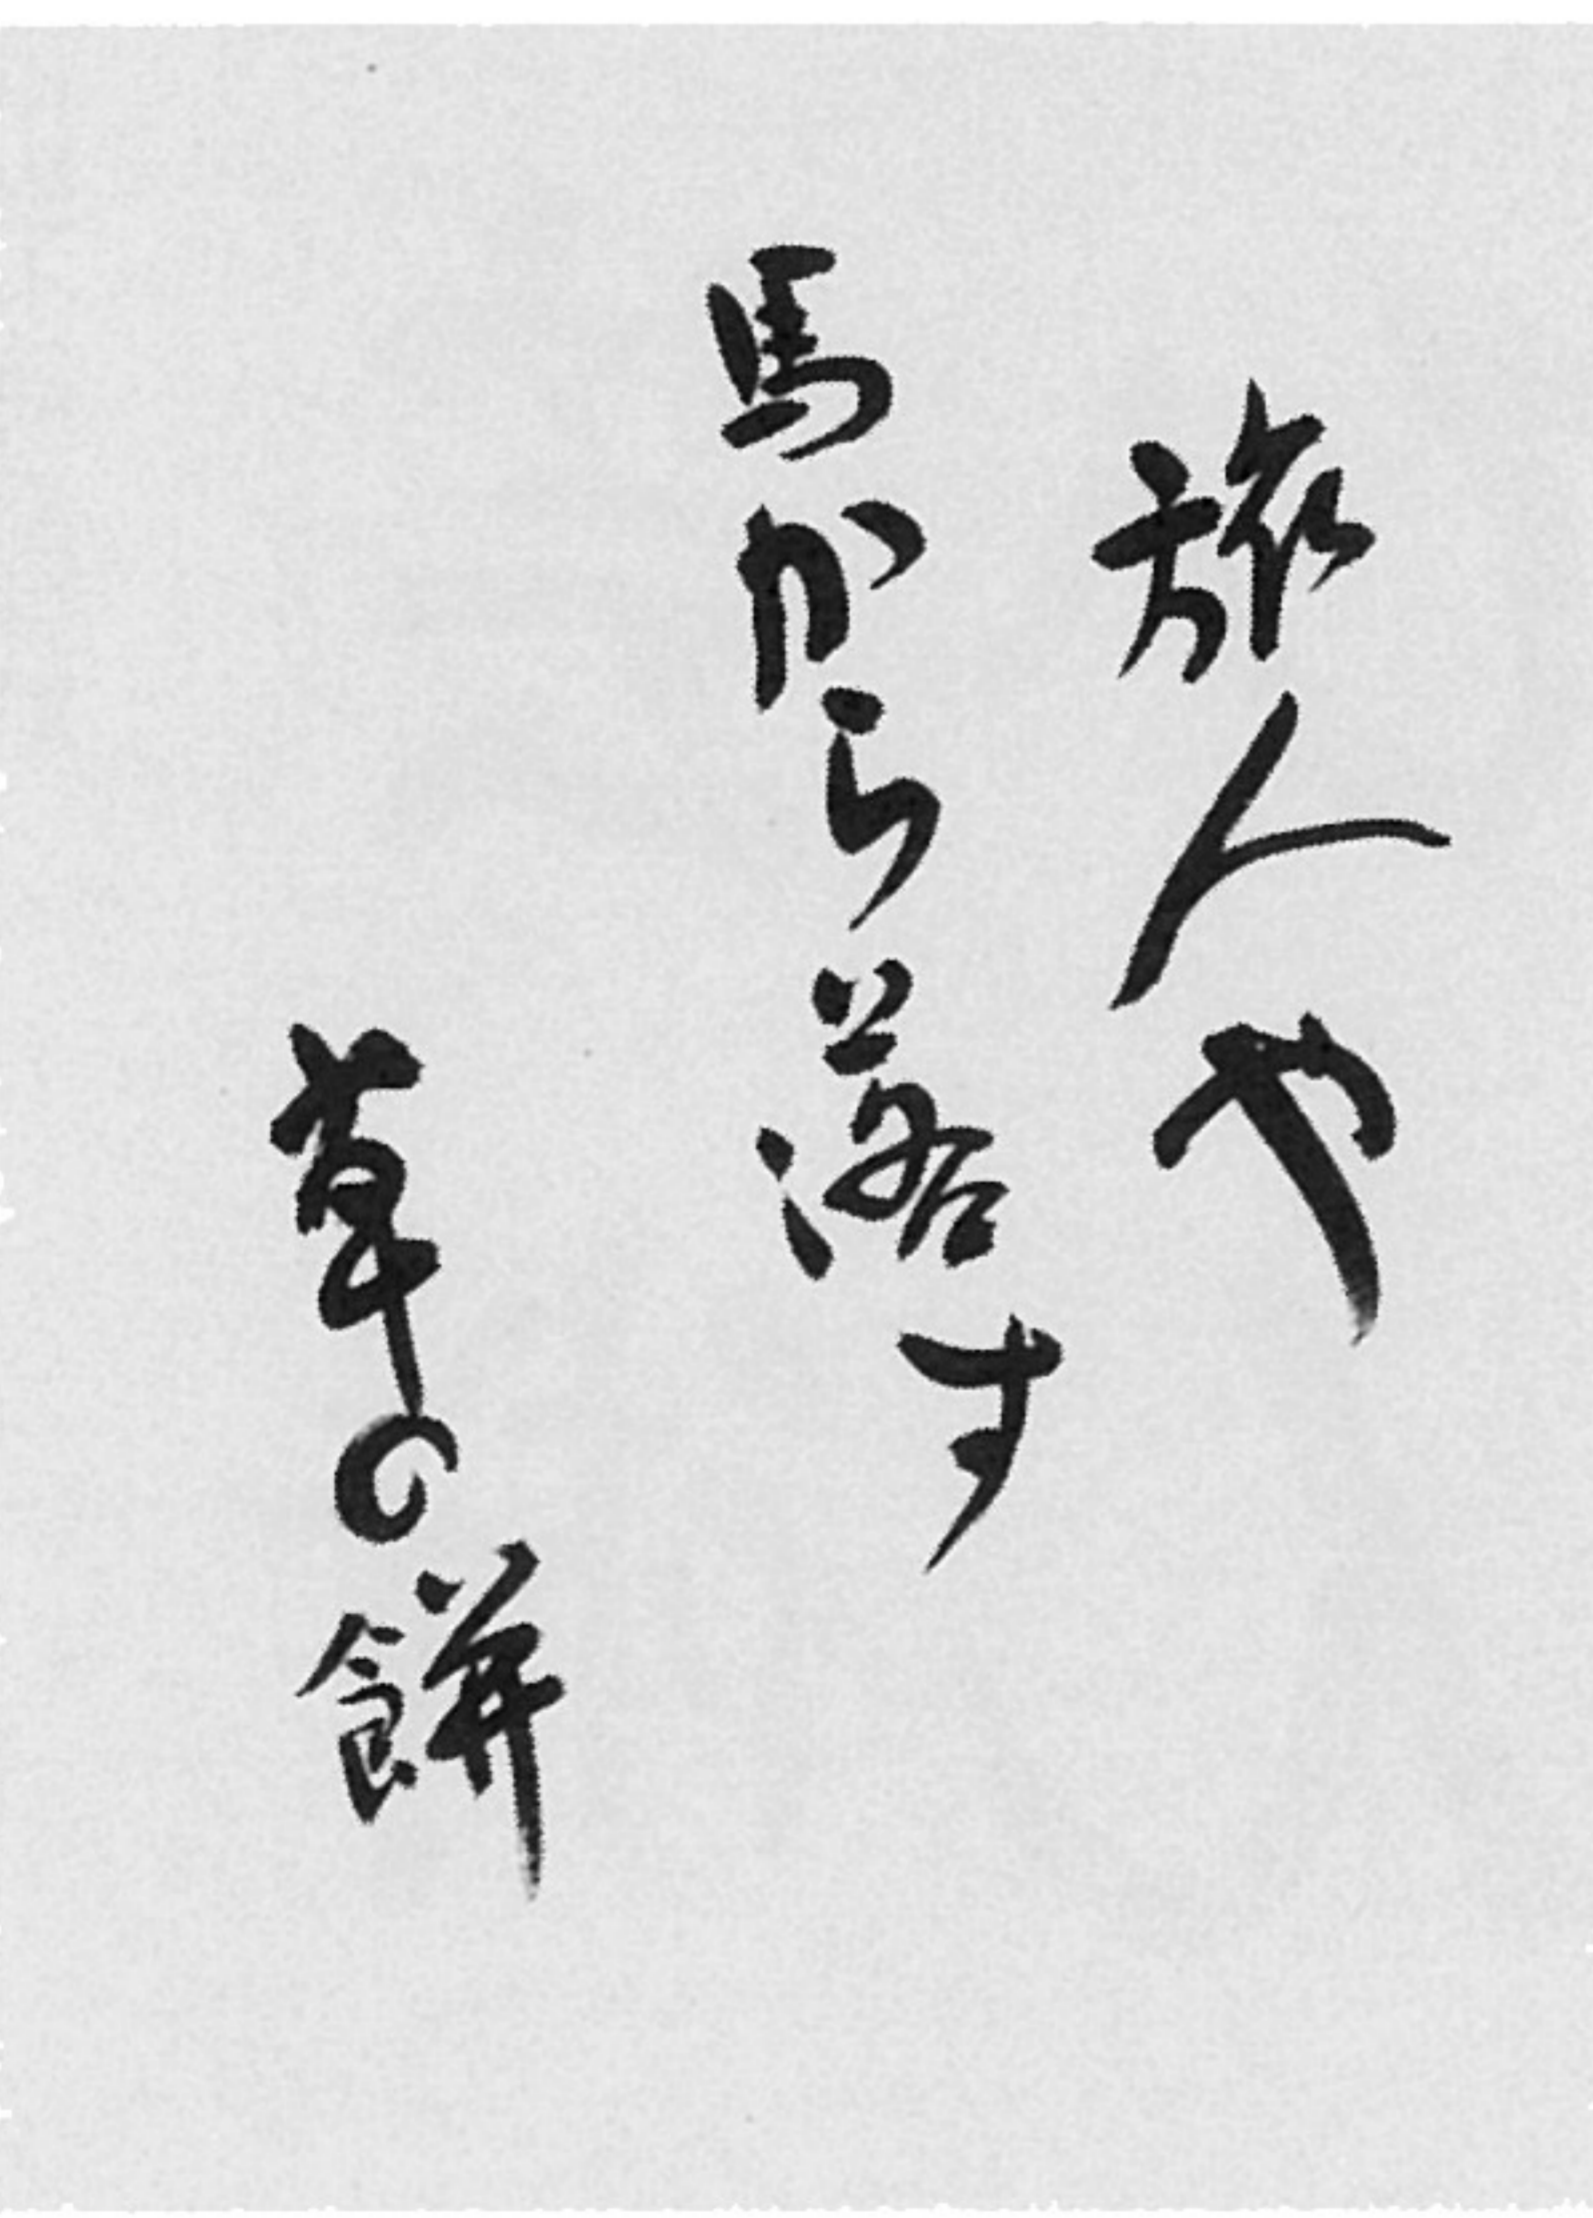 旅人や
馬から落す
草の餅